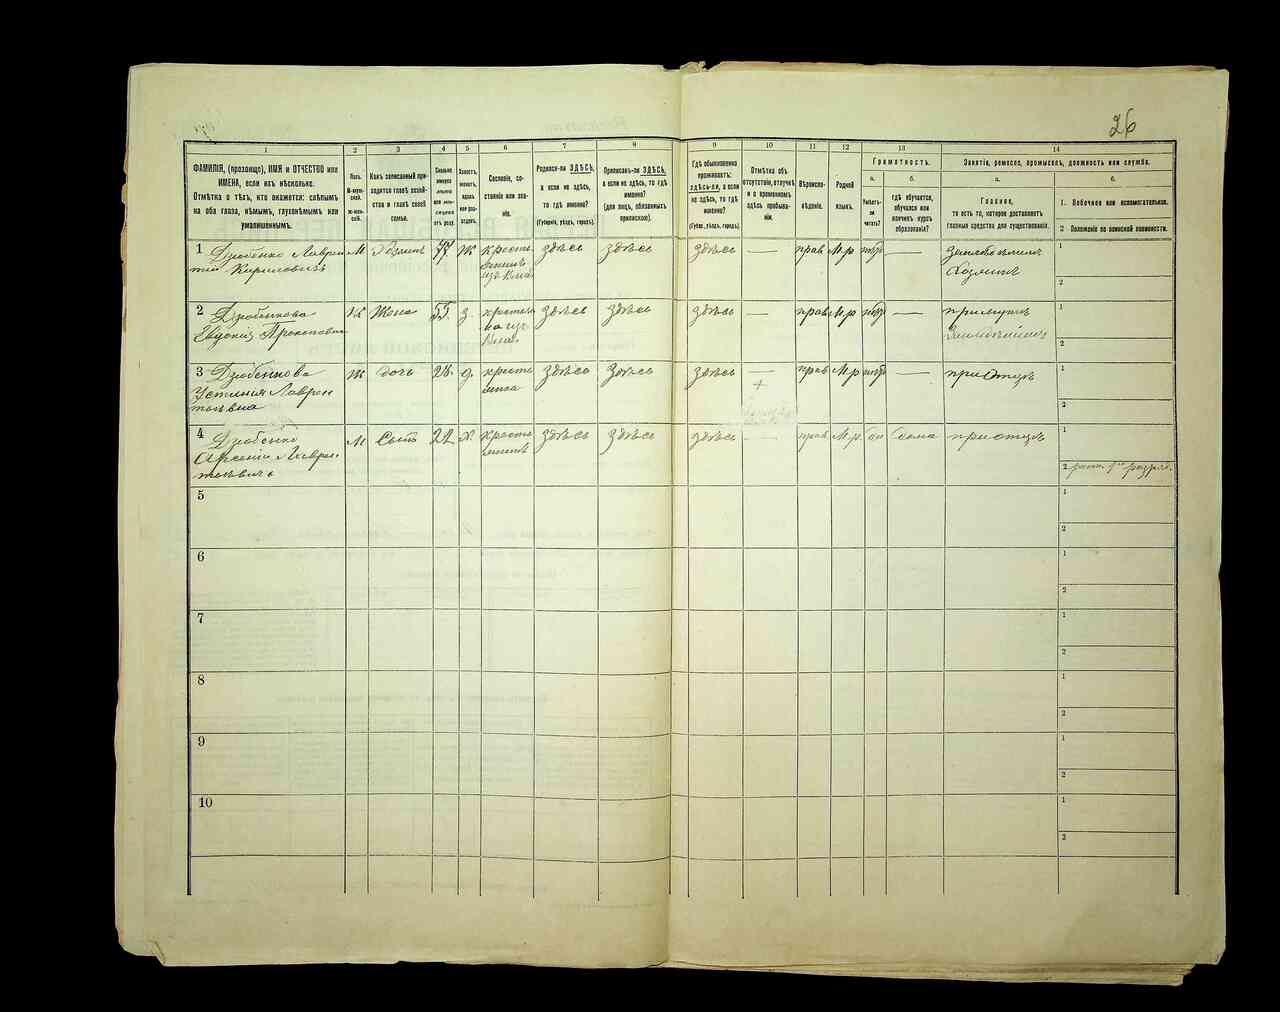 26
1 2 3 4 5 6 7 8 9 10 11 12 13 14
ФАМИЛІЯ, (прозвище), ИМЯ и ОТЧЕСТВО или
ИМЕНА, если ихъ нѣсколько.
Отмѣтка о тѣхъ, кто окажется: слѣпымъ
на оба глаза, нѣмымъ, глухонѣмымъ или
умалишеннымъ.
Полъ.
М-муж-
ской.
Ж-жен-
скій.
Какъ записанный при-
ходится главѣ хозяй-
ства и главѣ своей
семьи.
Сколько
минуло
лѣтъ
или мѣ-
сяцевъ
отъ роду.
Холостъ,
женатъ,
вдовъ
или раз-
веденъ.
Сословіе, со-
стояніе или зва-
ніе.
Родился-ли ЗДѢСЬ,
а если не здѣсь,
то гдѣ именно?
(Губернія, уѣздъ, городъ).
Приписанъ-ли ЗДѢСЬ,
а если не здѣсь, то гдѣ
именно?
(для лицъ, обязанныхъ
припискою).
Гдѣ обыкновенно
проживаетъ:
здѣсь-ли, а если
не здѣсь, то гдѣ
именно?
(Губер., уѣздъ, городъ).
Отмѣтка объ
отсутствіи, отлучкѣ
и о временномъ
здѣсь пребыва-
ніи.
Вѣроиспо-
вѣданіе.
Родной
языкъ.
Грамотность.
а. б.
Умѣетъ-
ли
читать?
гдѣ обучается,
обучался или
кончилъ курсъ
образованія?
Занятіе, ремесло, промыселъ, должность или служба.
а. б.
Главное,
то есть то, которое доставляетъ
главныя средства для существованія.
1. Побочное или вспомогательное.
2 Положеніе по воинской повинности.
1 Дзюбенко Лаврен М Хозяинъ Ж кресть здѣсь здѣсь здѣсь — прав М.р нѣтъ — земледѣлецъ 1
тій Кириловичъ янинъ Хозяинъ
2
2 Дзюбенкова Ж Жена 55 з. крестьян здѣсь здѣсь здѣсь — прав М.р нѣтъ — при мужѣ 1
Евдокія Прокоповна ка
2
3 Дзюбенкова Ж дочь д. кресть здѣсь здѣсь здѣсь — прав М.р нѣтъ — при отцѣ 1
Устинія Лаврен янка +
тьевна 2
4 Дзюбенко М Сынъ 22 х. кресть здѣсь здѣсь здѣсь — прав М.р. при отцѣ 1
Арсеній Лаврен янинъ
тьевичъ 2 ратн. 1го разряд.
5 1
2
6 1
2
7 1
2
8 1
2
9 1
2
10 1
2